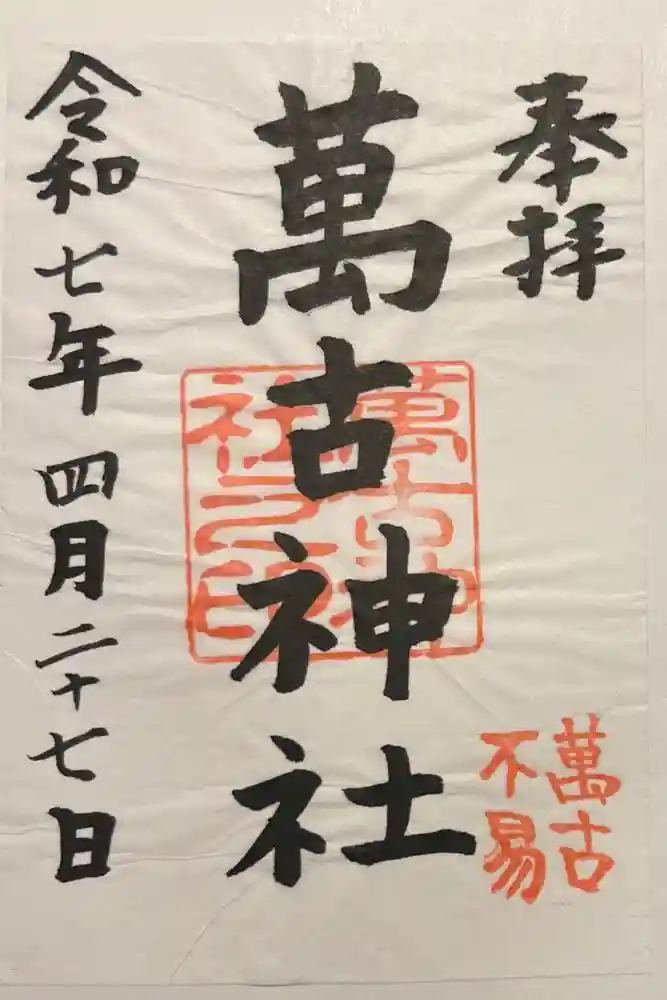 奉拝
萬古神社
萬古神
社之印
萬古
不易
令和七年四月二十七日